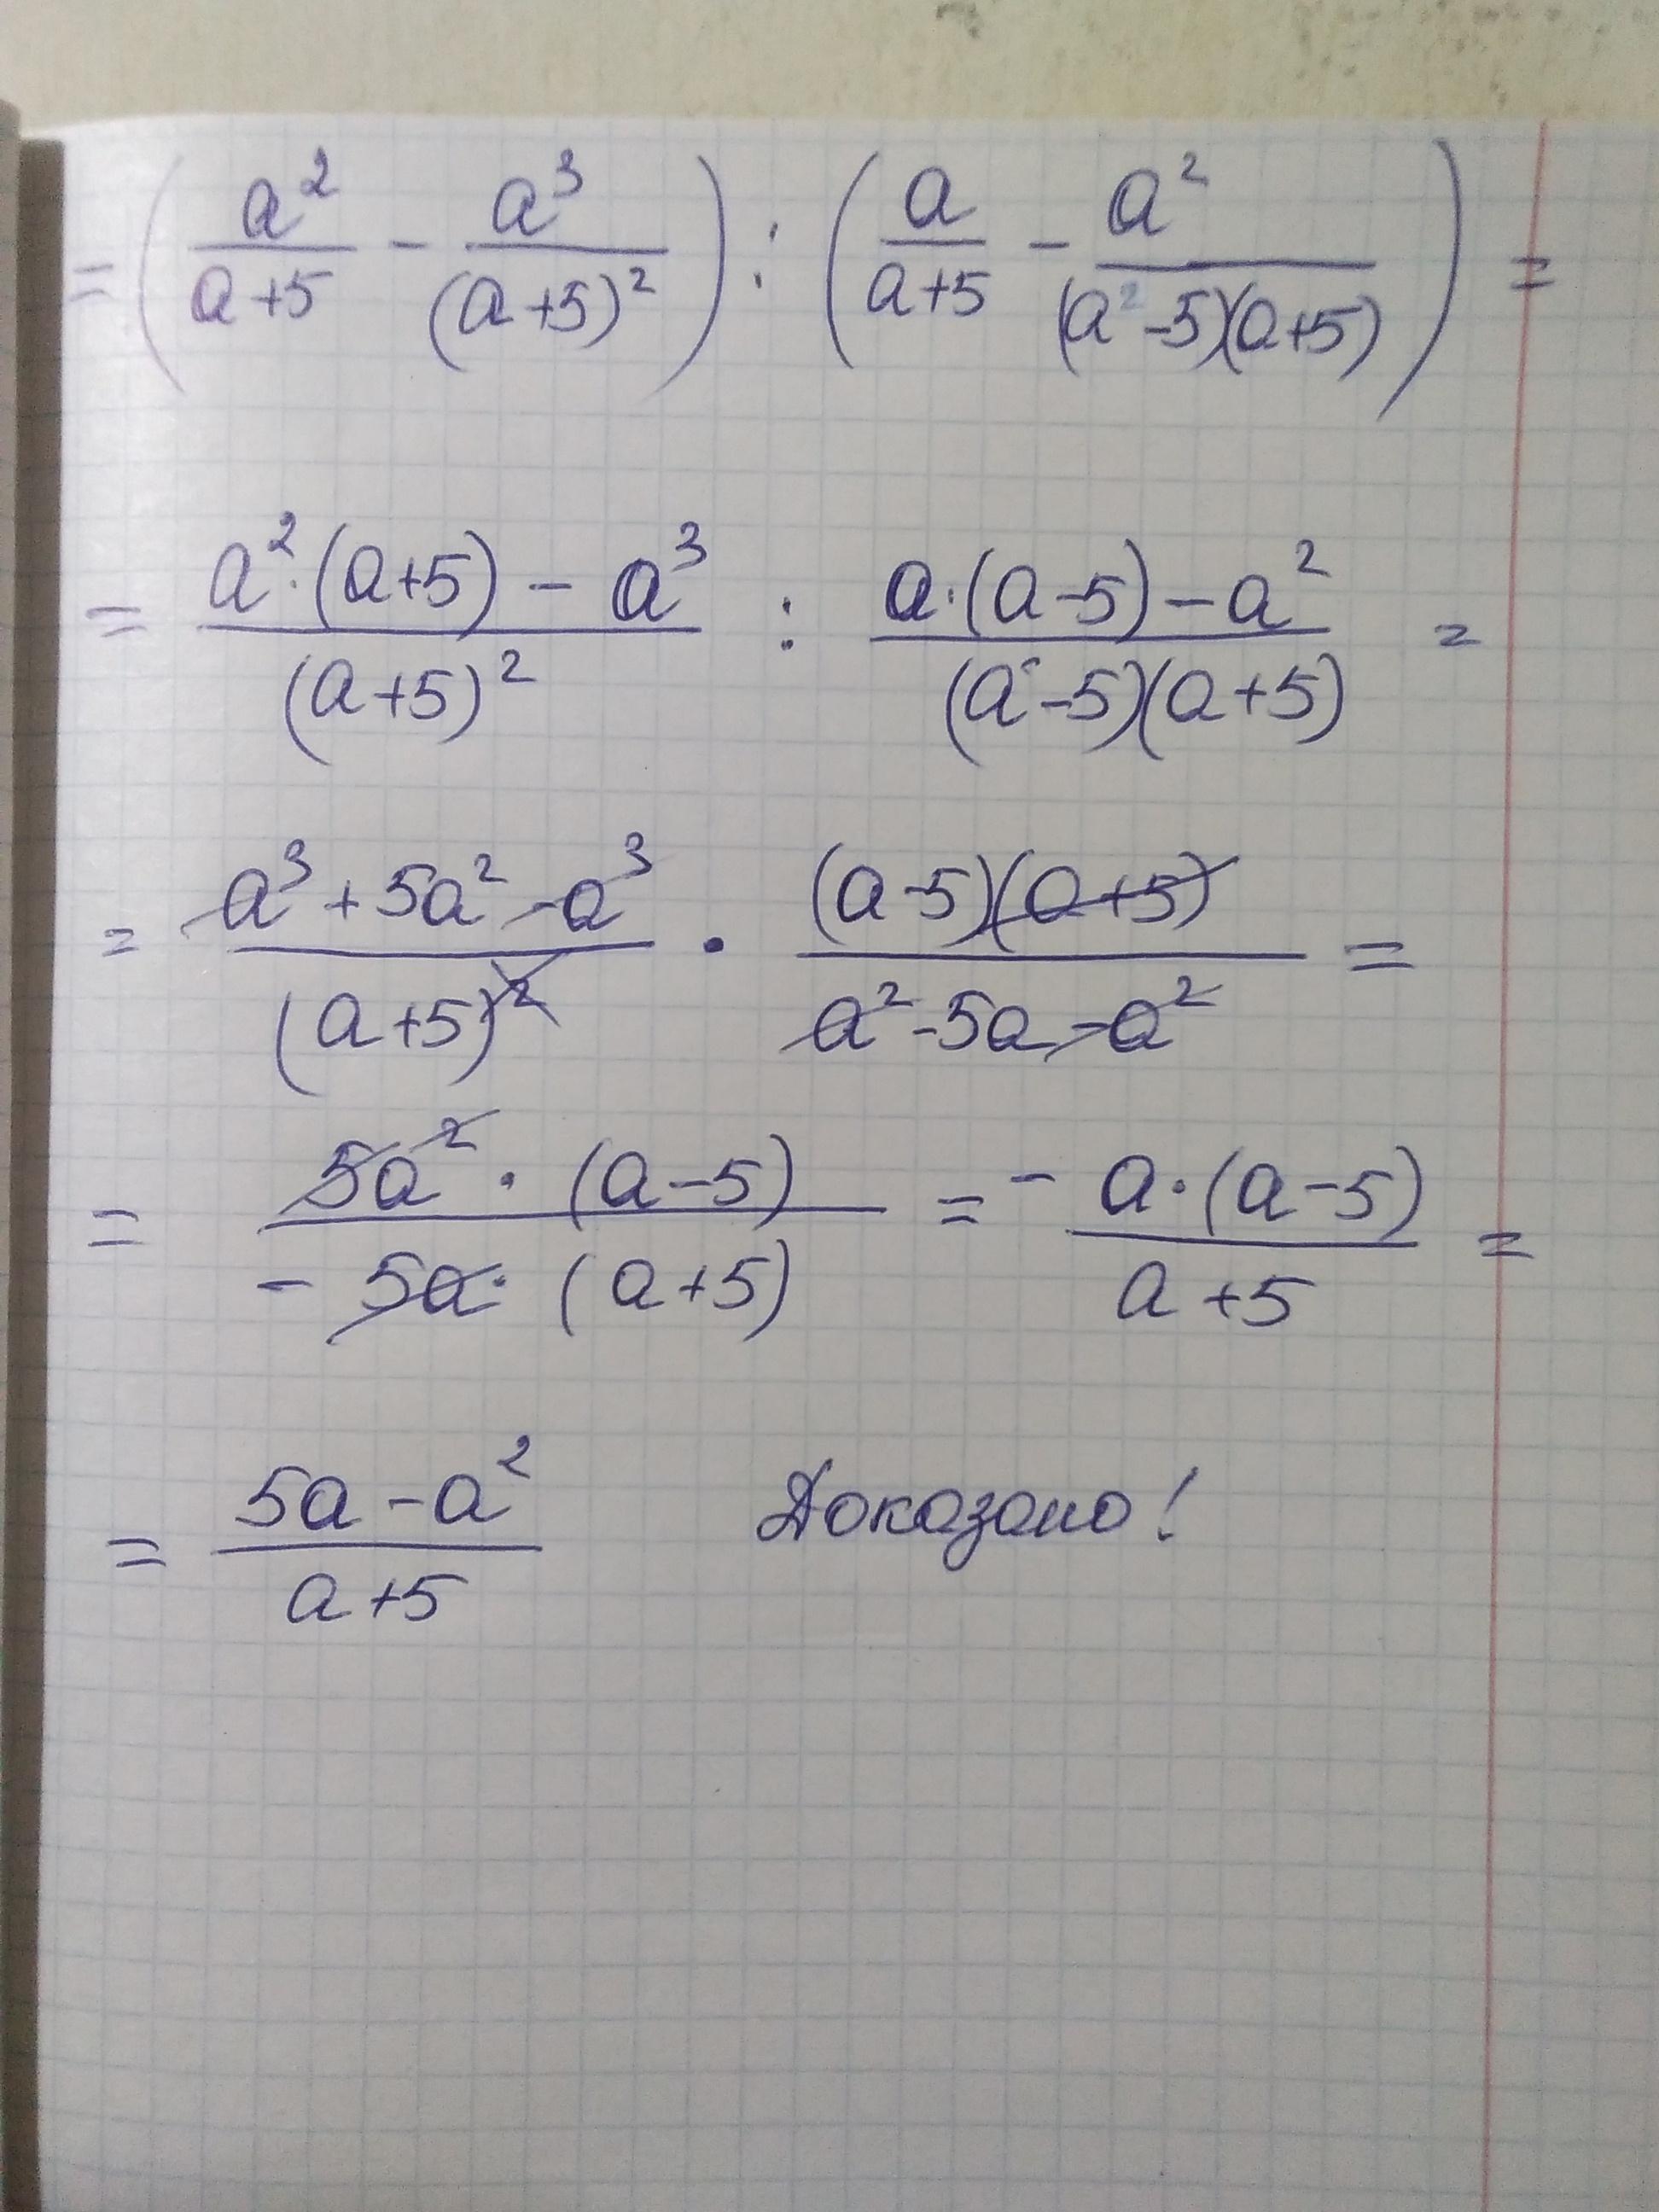 = ( a² / (a+5) − a³ / (a+5)² ) : ( a / (a+5) − a² / (a²−5)(a+5) ) =
= (a²·(a+5) − a³) / (a+5)² : (a·(a−5) − a²) / (a−5)(a+5) =
= (a³ + 5a² − a³) / (a+5)² · (a−5)(a+5) / (a² − 5a − a²) =
= 5a² · (a−5) / −5a· (a+5) = − a·(a−5) / (a+5) =
= (5a − a²) / (a+5) Доказано!